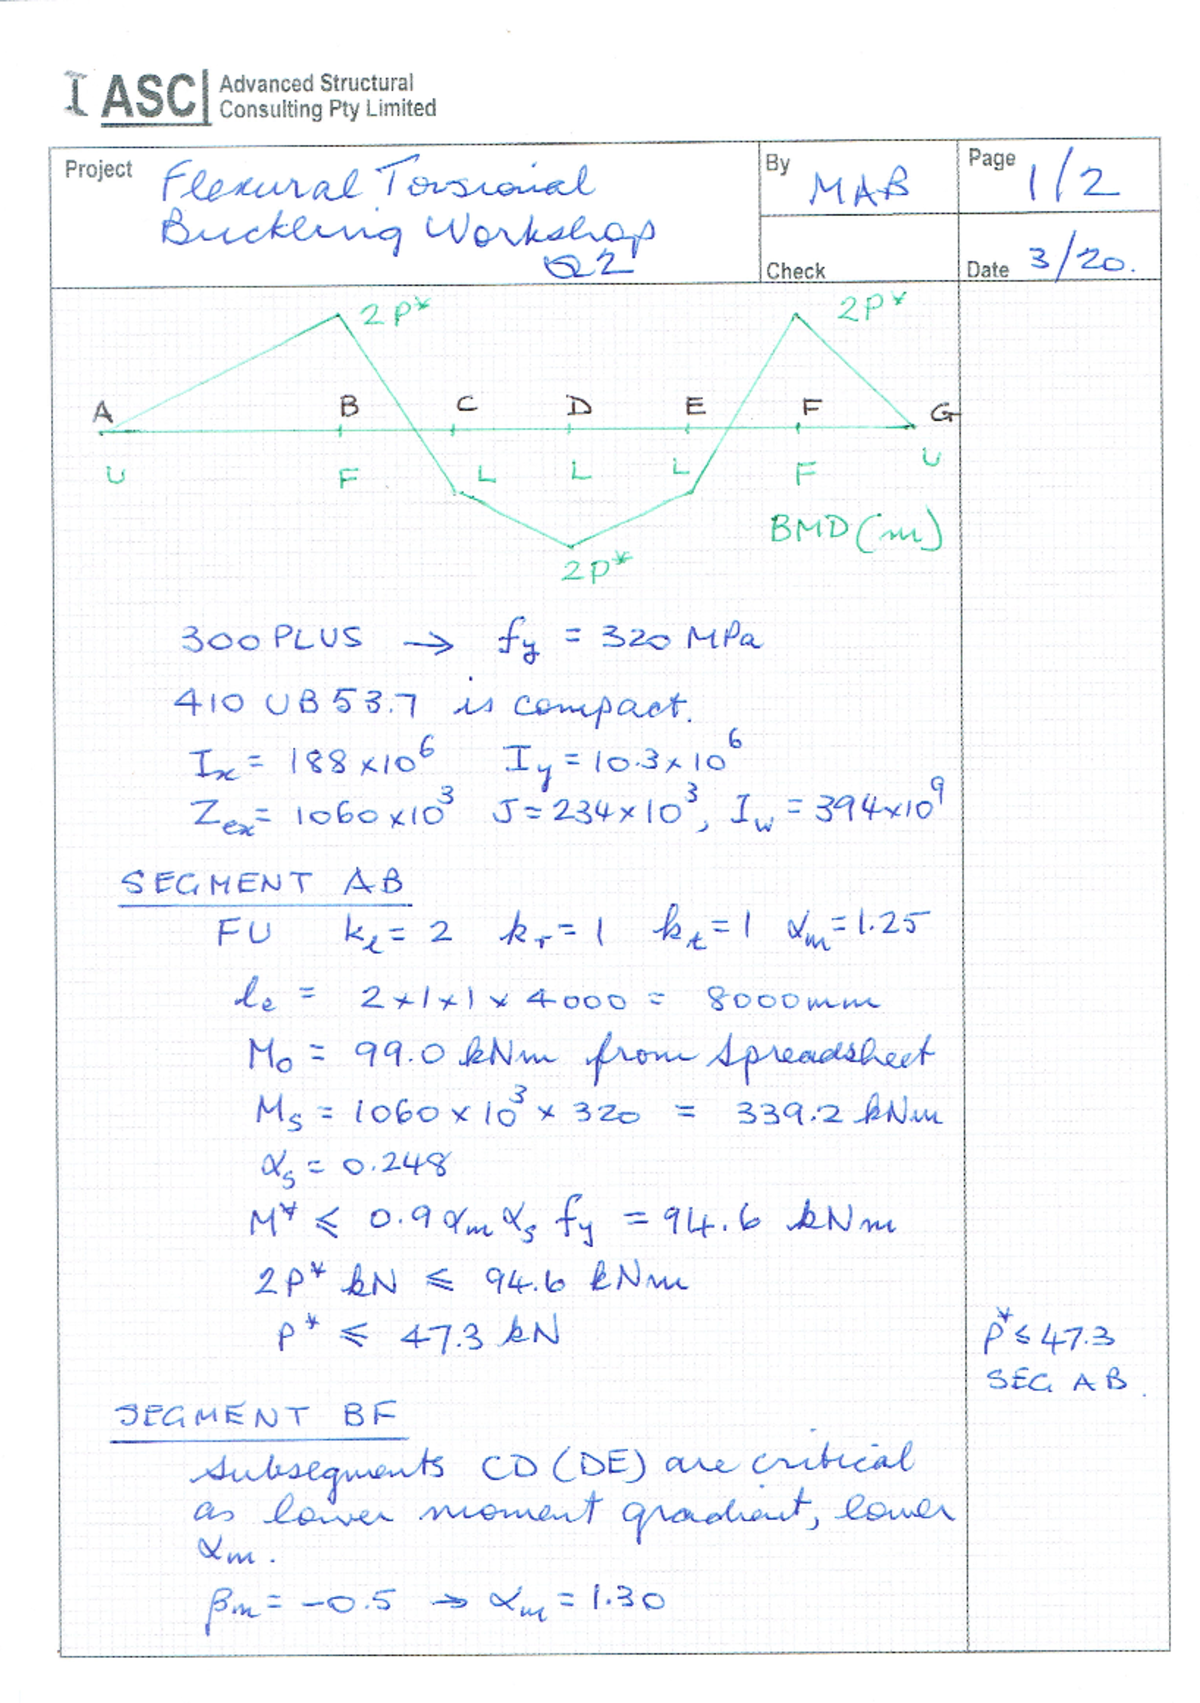 ASC Advanced Structural
Consulting Pty Limited
Project Flexural Torsional
Buckling Workshop
Q2
By MAB
Page 1/2
Check
Date 3/20.
2P* 2P*
A B C D E F G
U F L L L F U
BMD (m)
2P*
300 PLUS → fy = 320 MPa
410 UB 53.7 is compact.
Ix = 188 × 10^6 Iy = 10.3 × 10^6
Zex = 1060 × 10^3 J = 234 × 10^3, Iw = 394 × 10^9
SEGMENT AB
FU kl = 2 kr = 1 kt = 1 αm = 1.25
le = 2 × 1 × 1 × 4000 = 8000 mm
Mo = 99.0 kNm from spreadsheet
Ms = 1060 × 10^3 × 320 = 339.2 kNm
αs = 0.248
M* ≤ 0.9 αm αs fy = 94.6 kNm
2P* kN ≤ 94.6 kNm
P* ≤ 47.3 kN
P* ≤ 47.3
SEG AB.
SEGMENT BF
Subsegments CD (DE) are critical
as lower moment gradient, lower
αm.
βm = -0.5 → αm = 1.30